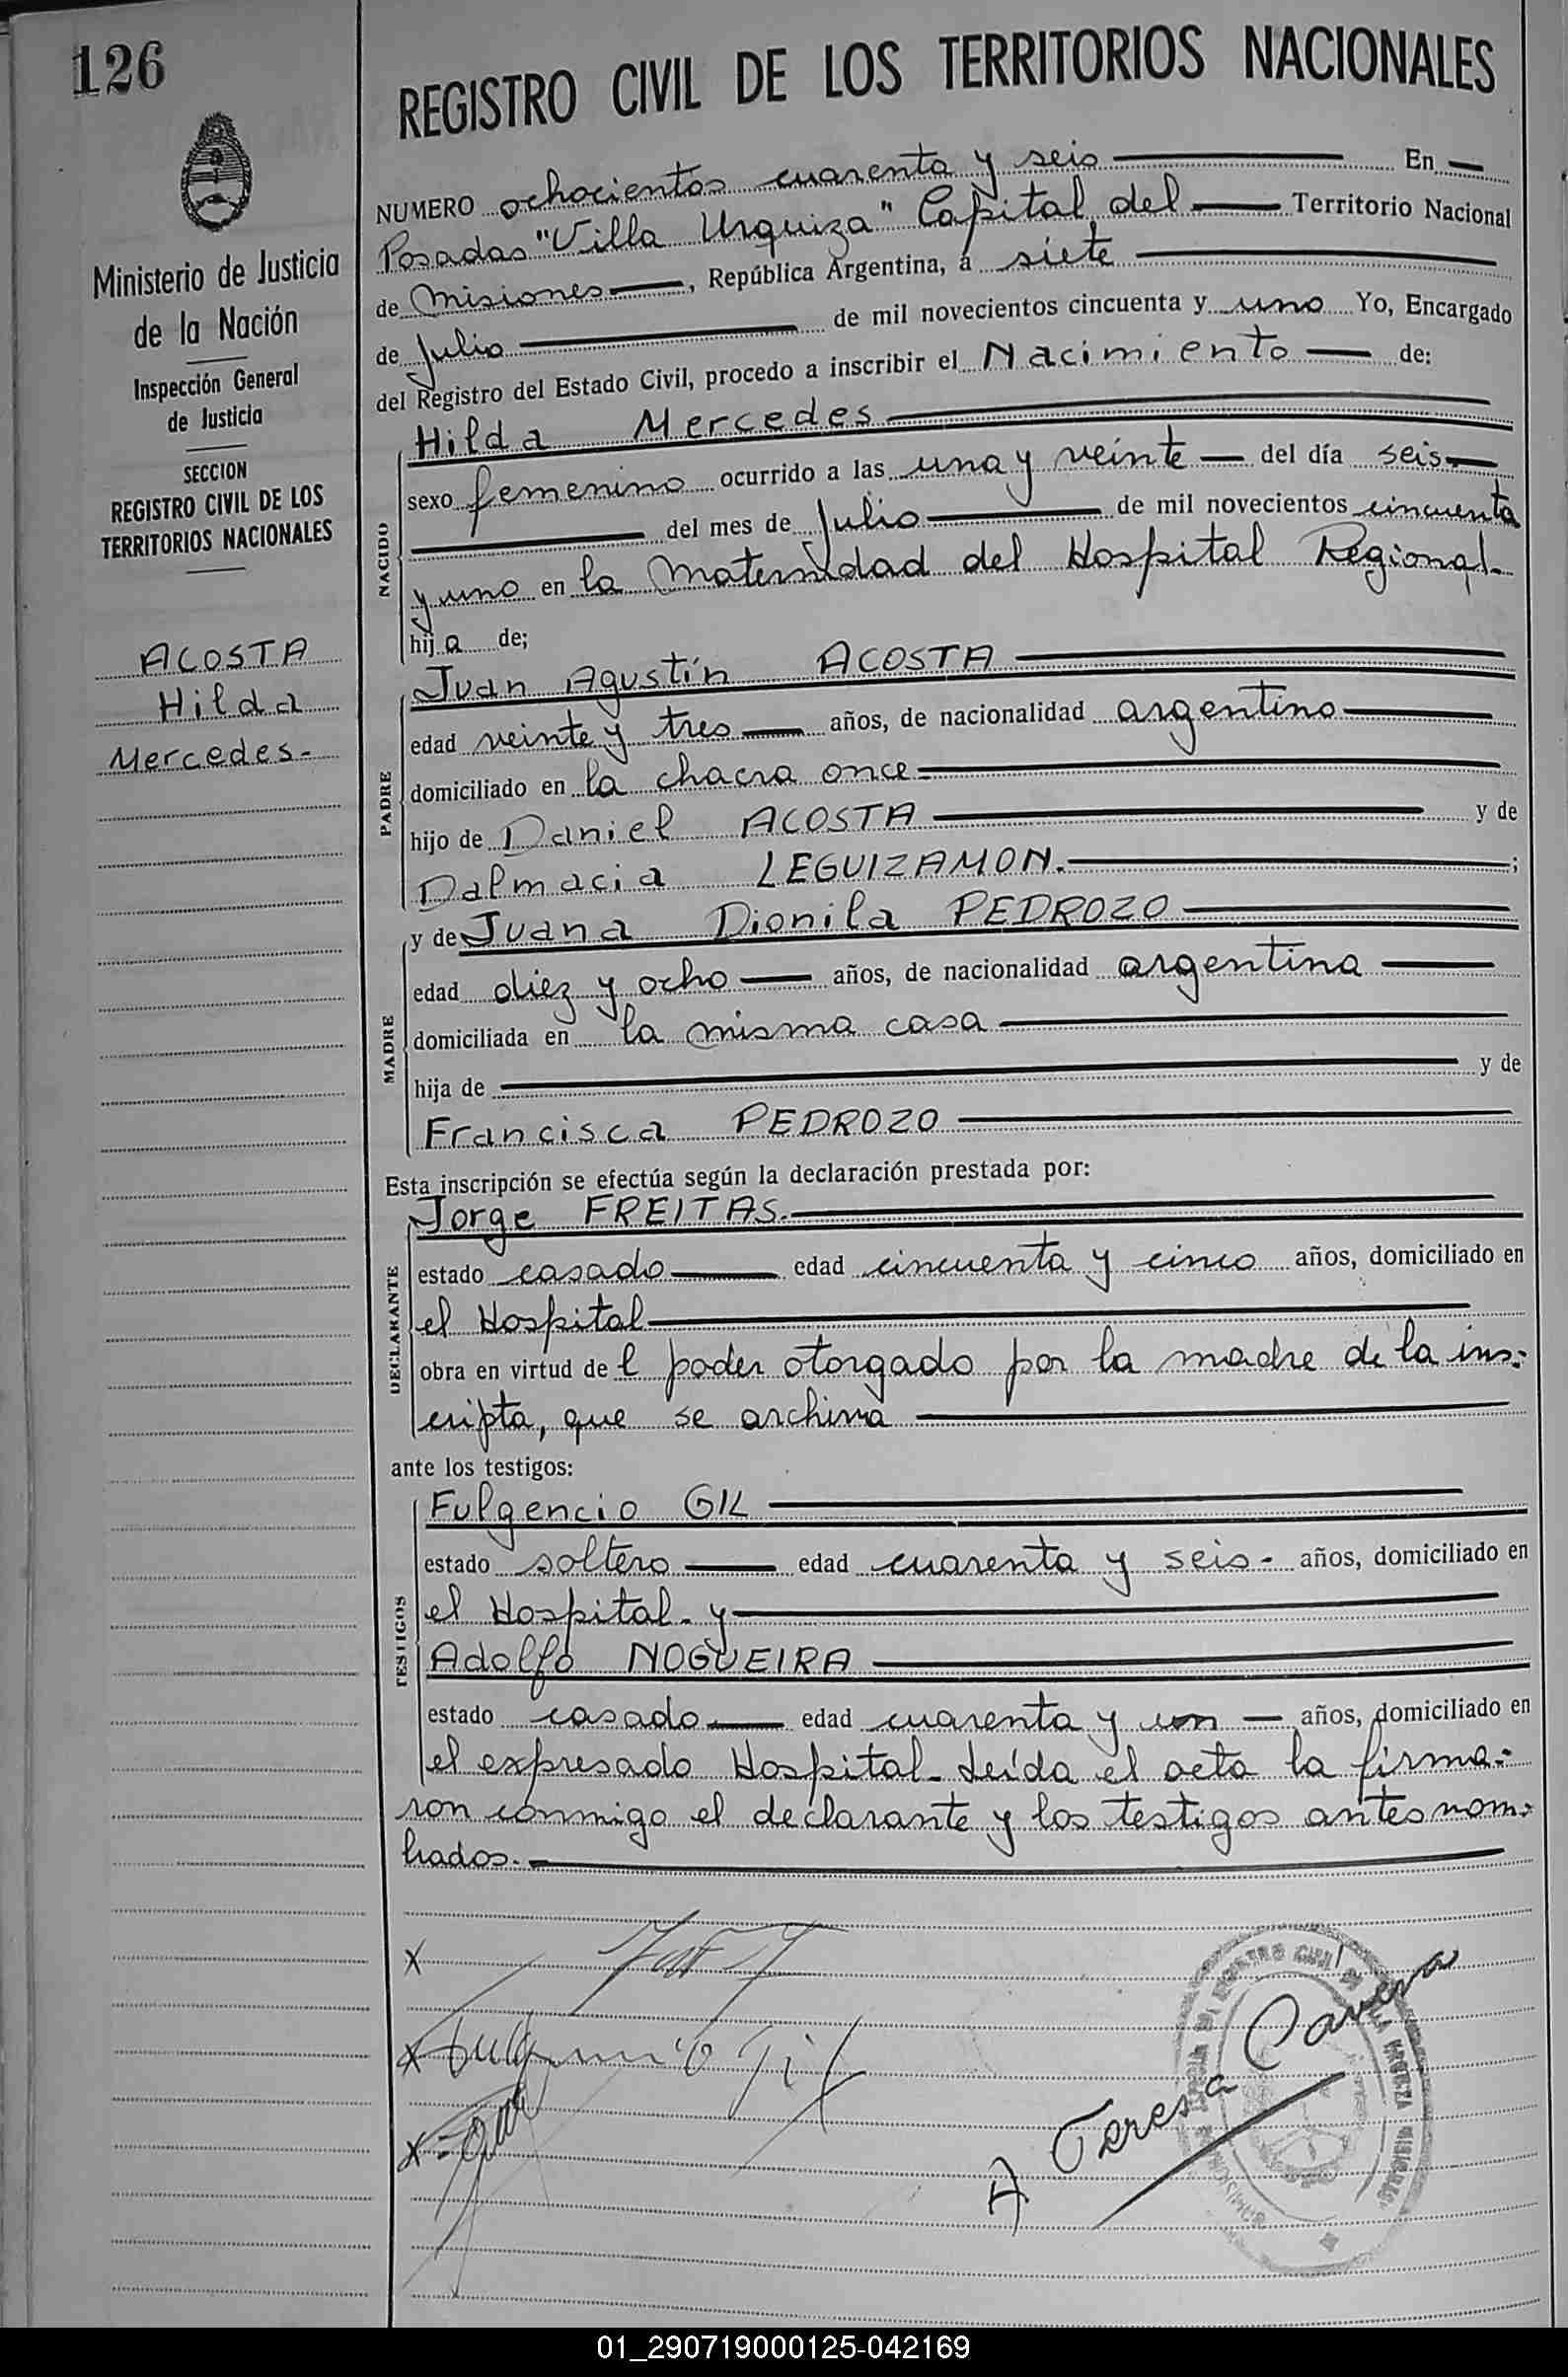 126
Ministerio de Justicia
de la Nación
Inspección General
de Justicia
SECCION
REGISTRO CIVIL DE LOS
TERRITORIOS NACIONALES
ACOSTA
Hilda
Mercedes.-
REGISTRO CIVIL DE LOS TERRITORIOS NACIONALES
NUMERO ochocientos cuarenta y seis En
Posadas "Villa Urquiza" Capital del Territorio Nacional
de Misiones, República Argentina, a siete
de Julio de mil novecientos cincuenta y uno Yo, Encargado
del Registro del Estado Civil, procedo a inscribir el Nacimiento de:
NACIDO
Hilda Mercedes
sexo femenino ocurrido a las una y veinte del día seis
del mes de Julio de mil novecientos cincuenta
y uno en la Maternidad del Hospital Regional.
hija de;
PADRE
Juan Agustín ACOSTA
edad veinte y tres años, de nacionalidad argentino
domiciliado en la chacra once
hijo de Daniel ACOSTA y de
Dalmacia LEGUIZAMON. ;
MADRE
y de Juana Dionila PEDROZO
edad diez y ocho años, de nacionalidad argentina
domiciliada en la misma casa
hija de y de
Francisca PEDROZO
Esta inscripción se efectúa según la declaración prestada por:
DECLARANTE
Jorge FREITAS.
estado casado edad cincuenta y cinco años, domiciliado en
el Hospital
obra en virtud de l poder otorgado por la madre de la ins-
cripta, que se archiva
ante los testigos:
TESTIGOS
Fulgencio GIL
estado soltero edad cuarenta y seis- años, domiciliado en
el Hospital. y
Adolfo NOGUEIRA
estado casado edad cuarenta y un años, domiciliado en
el expresado Hospital. Leída el acta la firma-
ron conmigo el declarante y los testigos antes nom-
brados.
x
x Fulgencio Gil
x
A Teresa
01_290719000125-042169